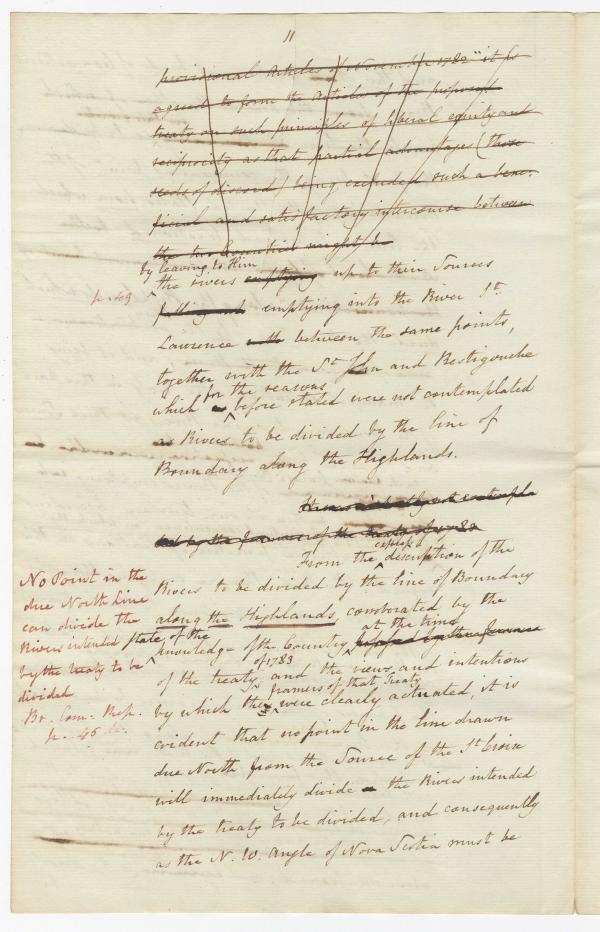 11
provisional Articles of November 1782 "it is
agreed to form the Articles of the proposed
treaty on such principles of liberal equity and
reciprocity as that partial advantages (those
seeds of discord) being excluded such a bene-
ficial and satisfactory intercourse between
the two Countries might be
by leaving to Him
the rivers emptying up to their Sources
p. 49
falling and emptying into the River St.
Lawrence with between the same points,
together with the St John and Restigouche
for the reasons
which before stated were not contemplated
as Rivers to be divided by the line of
Boundary along the Highlands.
by the framers of the treaty of 1783
express
From the description of the
Rivers to be divided by the line of Boundary
along the Highlands, corroborated by the
state of the at the time
knowledge of the Country
of 1783
of the treaty, and the views and intentions
framers of that Treaty
by which the were clearly actuated, it is
evident that no point in the line drawn
due North from the Source of the St Croix
will immediately divide the Rivers intended
by the treaty to be divided, and consequently
as the N. W. Angle of Nova Scotia must be
No Point in the
due North Line
can divide the
Rivers intended
by the treaty to be
divided
Br. Com. Rep.
p. 46